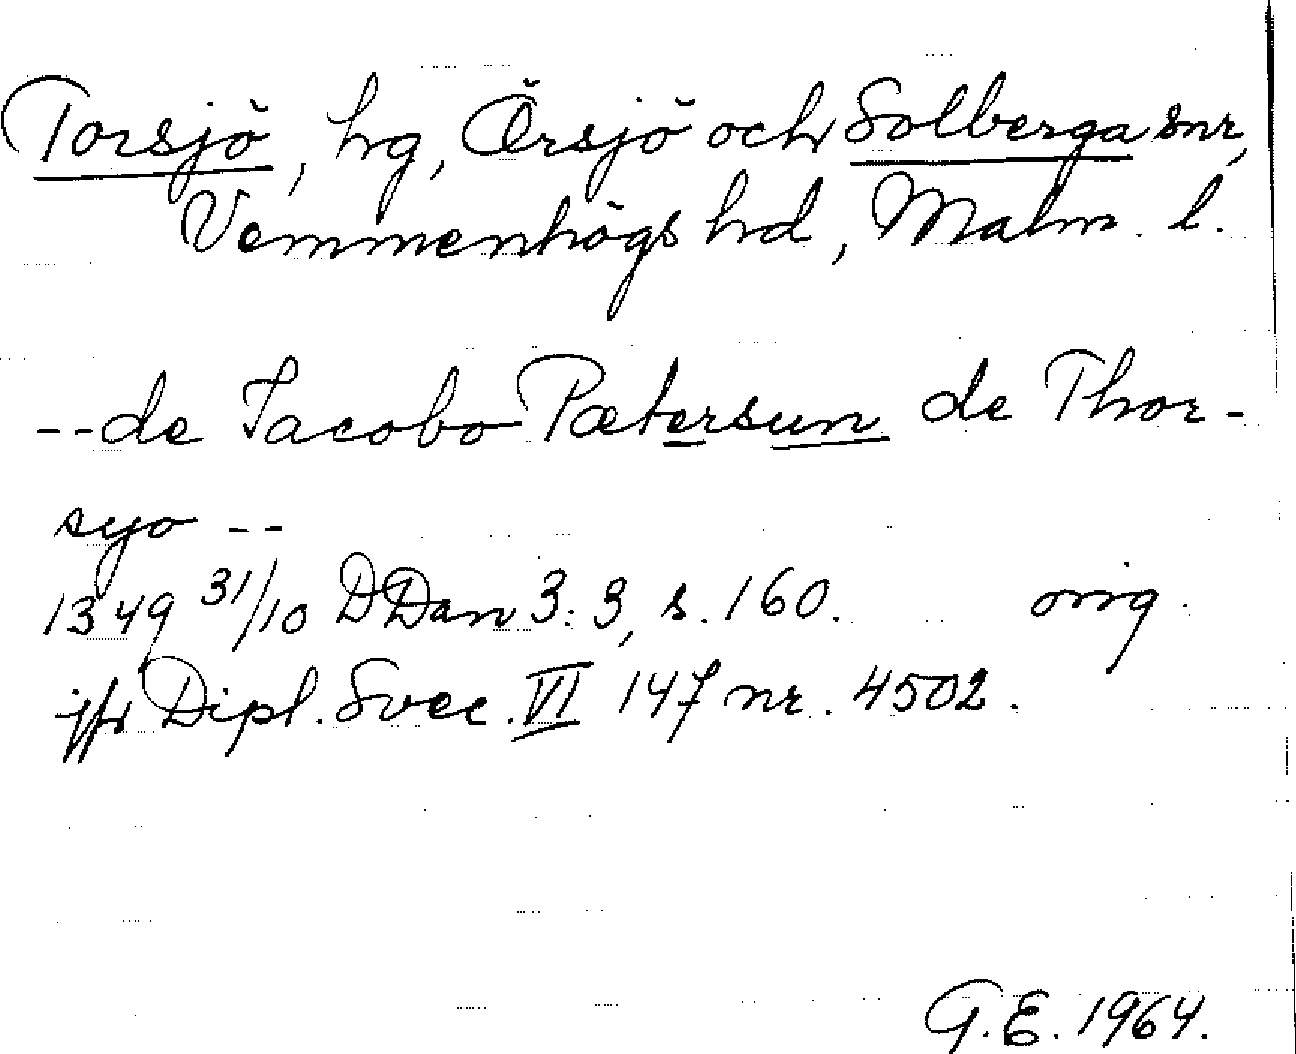 Torsjö, hg, Örsjö och Solberga snr,
Vemmenhögs hd, Malm. l.
--de Jacobo Pætersun de Thor-
syo --
1349 31/10 DDan 3:3, s. 160. orig.
jfr Dipl. Svec. VI 147 nr. 4502.
G.E. 1964.